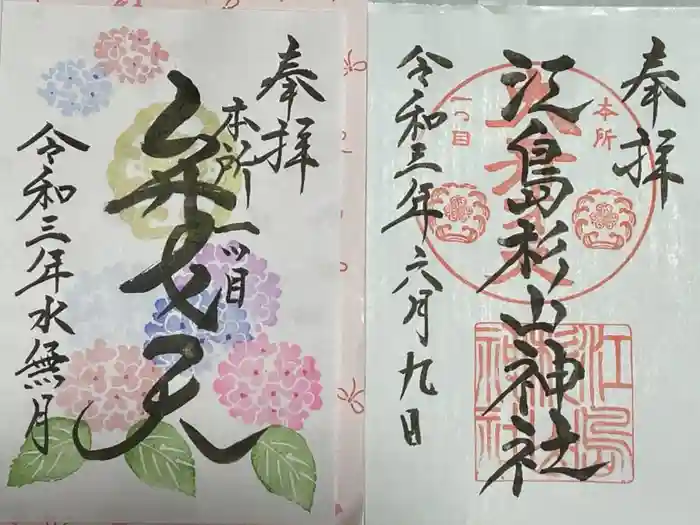 奉拝
本所一ツ目
弁才天
令和三年水無月
奉拝
本所
一つ目
江島杉山神社
江島
杉山
神社
令和三年六月九日